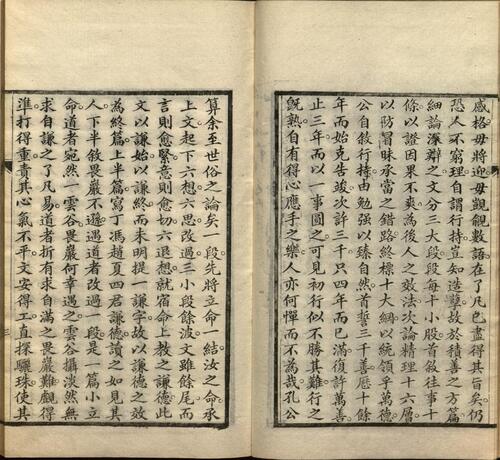 感格毋將迎毋觀覦數語在了凡已盡其旨矣仍
恐人不窮理自謂行持豈知造孽故於積善之方篇
細論深辨之文分三大段段每十小股首敘往事十
條以證因果不爽為後人之效法次論精理十六層
以防冒昧承當之錯路終標十大綱以統領乎萬德
公自敘行持由勉強以臻自然首誓三千善歷十餘
年而始克告竣次許三千只四年而已滿復許萬善
止三年而以一事圓之可見初行似不勝其難行之
既熟自有得心應手之樂人亦何憚而不為哉孔公
算余至世俗之論矣一段先將立命一結汝之命承
上文起下六想六思改過三小段餘波文雖餘尾而
言則愈緊意則愈切六退想就宿命上教之謙德此
文以謙始以謙終而未明提一謙字故以謙德之效
為終篇上半篇寫丁馮趙夏四君謙德讀之如見其
人下半敘畏巖不遜遇道者改過一段是一篇小立
命道者宛然一雲谷畏巖何幸遇之雲谷攝淡然無
求自謙之了凡易道者折有求自滿之畏巖難觀得
準打得重責其心氣不平文安得工直探驪珠使其
三